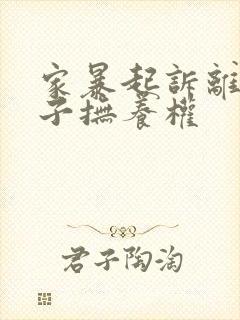 家暴起訴離
子撫養權
君子陶淘